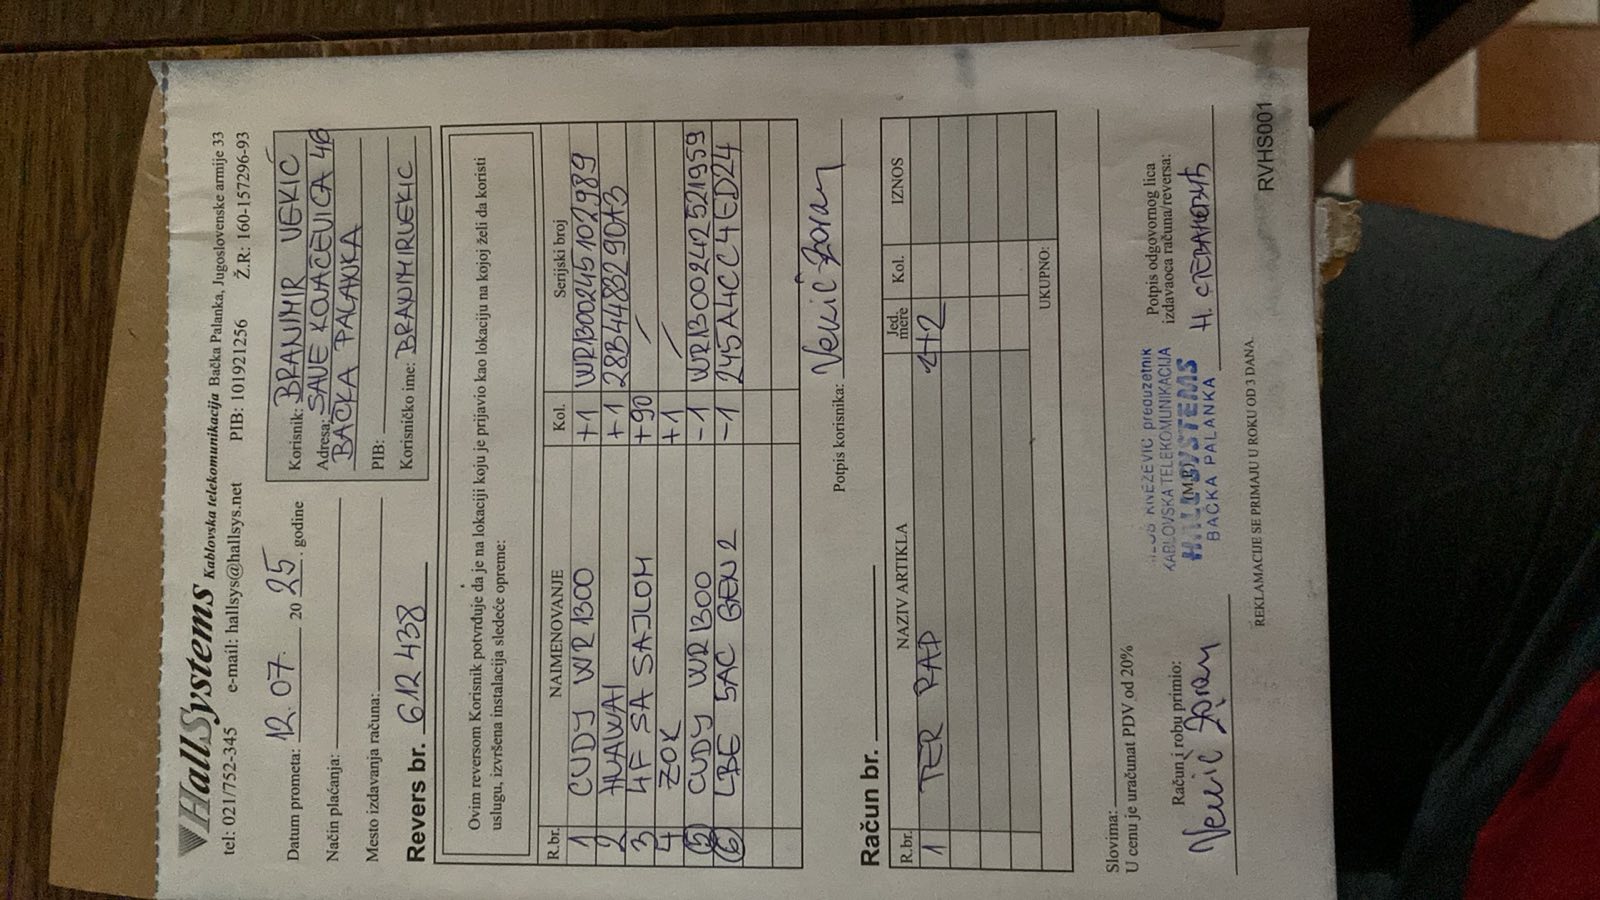 HallSystems Kablovska telekomunikacija Bačka Palanka, Jugoslovenske armije 33
tel: 021/752-345 e-mail: hallsys@hallsys.net PIB: 101921256 Ž.R: 160-157296-93
Datum prometa: 12.07. 2025. godine
Način plaćanja:
Mesto izdavanja računa:
Revers br. 612438
Korisnik: BRANIMIR VEKIĆ
Adresa: SAVE KOVAČEVIĆA 46
BAČKA PALANKA
PIB:
Korisničko ime: BRANIMIRVEKIC
Ovim reversom Korisnik potvrđuje da je na lokaciji koju je prijavio kao lokaciju na kojoj želi da koristi
uslugu, izvršena instalacija sledeće opreme:
R.br. NAIMENOVANJE Kol. Serijski broj
1 CUDY WR1300 +1 WR1300245102989
2 HUAWAI +1 28B4483290A3
3 4F SA SAJLOM +90 /
4 ZOK +1 /
5 CUDY WR1300 -1 WR1300242521959
6 LBE 5AC GEN 2 -1 245A4CC4ED24
Potpis korisnika: Vekić Zoran
Račun br.
R.br. NAZIV ARTIKLA Jed. mere Kol. IZNOS
1 TER RAD 1+2
UKUPNO:
Slovima:
U cenu je uračunat PDV od 20%
Račun i robu primio:
Vekić Zoran
(M.P.)
KNEŽEVIĆ preduzetnik
KABLOVSKA TELEKOMUNIKACIJA
HALLSYSTEMS
BAČKA PALANKA
Potpis odgovornog lica
izdavaoca računa/reversa:
Н. СТЕВАНОВИЋ
REKLAMACIJE SE PRIMAJU U ROKU OD 3 DANA.
RVHS001